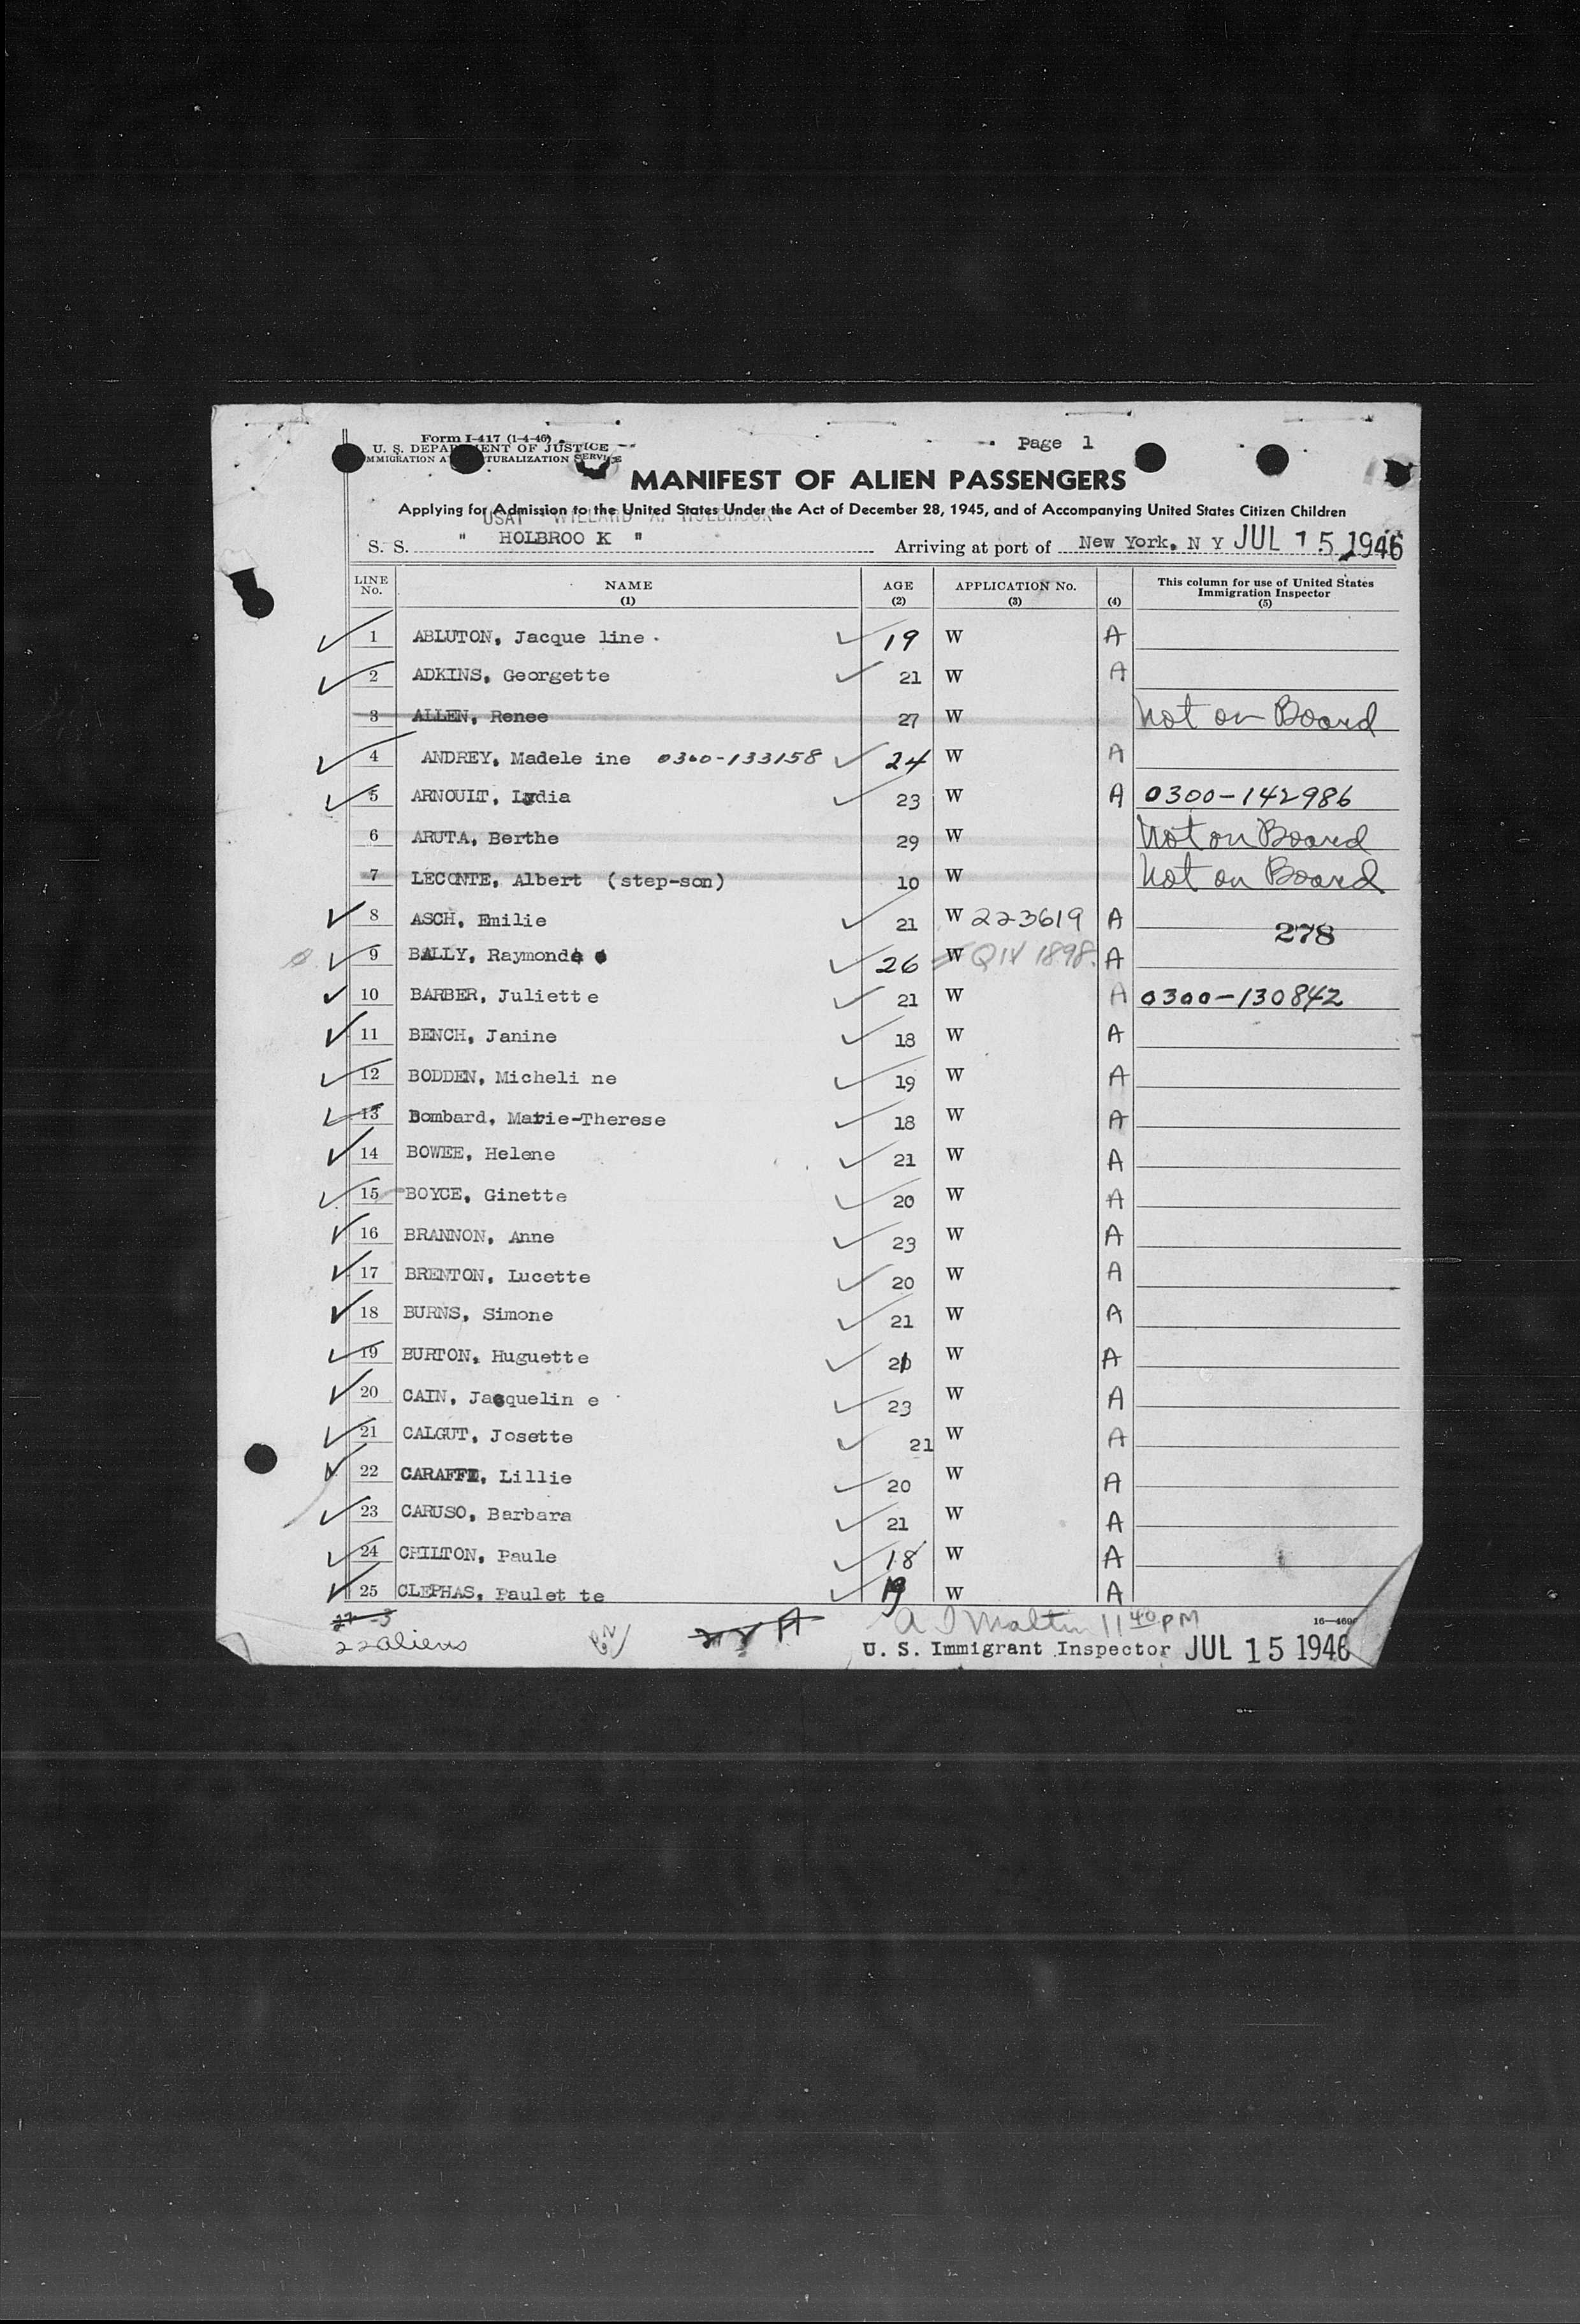 Form I-417 (1-4-46)
Page 1
U. S. DEPARTMENT OF JUSTICE
IMMIGRATION AND NATURALIZATION SERVICE
MANIFEST OF ALIEN PASSENGERS
Applying for Admission to the United States Under the Act of December 28, 1945, and of Accompanying United States Citizen Children
USAT WILLARD A. HOLBROOK
S. S. " HOLBROO K " Arriving at port of New York, N Y JUL 15 1946
LINE No. NAME (1) AGE (2) APPLICATION No. (3) (4) This column for use of United States Immigration Inspector (5)
1 ABLUTON, Jacque line 19 W A
2 ADKINS, Georgette 21 W A
3 ALLEN, Renee 27 W Not on Board
4 ANDREY, Madele ine 0300-133158 24 W A
5 ARNOULT, Lydia 23 W A 0300-142986
6 ARUTA, Berthe 29 W Not on Board
7 LECONTE, Albert (step-son) 10 W Not on Board
8 ASCH, Emilie 21 W 223619 A
278
9 BALLY, Raymonde 26 W QIV 1898 A
10 BARBER, Juliette 21 W A 0300-130842
11 BENCH, Janine 18 W A
12 BODDEN, Micheli ne 19 W A
13 Bombard, Marie-Therese 18 W A
14 BOWEE, Helene 21 W A
15 BOYCE, Ginette 20 W A
16 BRANNON, Anne 23 W A
17 BRENTON, Lucette 20 W A
18 BURNS, Simone 21 W A
19 BURTON, Huguette W A
20 CAIN, Jacquelin e 23 W A
21 CALGUT, Josette 21 W A
22 CARAFFI, Lillie 20 W A
23 CARUSO, Barbara 21 W A
24 CHILTON, Paule 18 W A
25 CLEPHAS, Paulet te 19 W A
22 aliens
22 A
11 40 PM
U. S. Immigrant Inspector JUL 15 1946